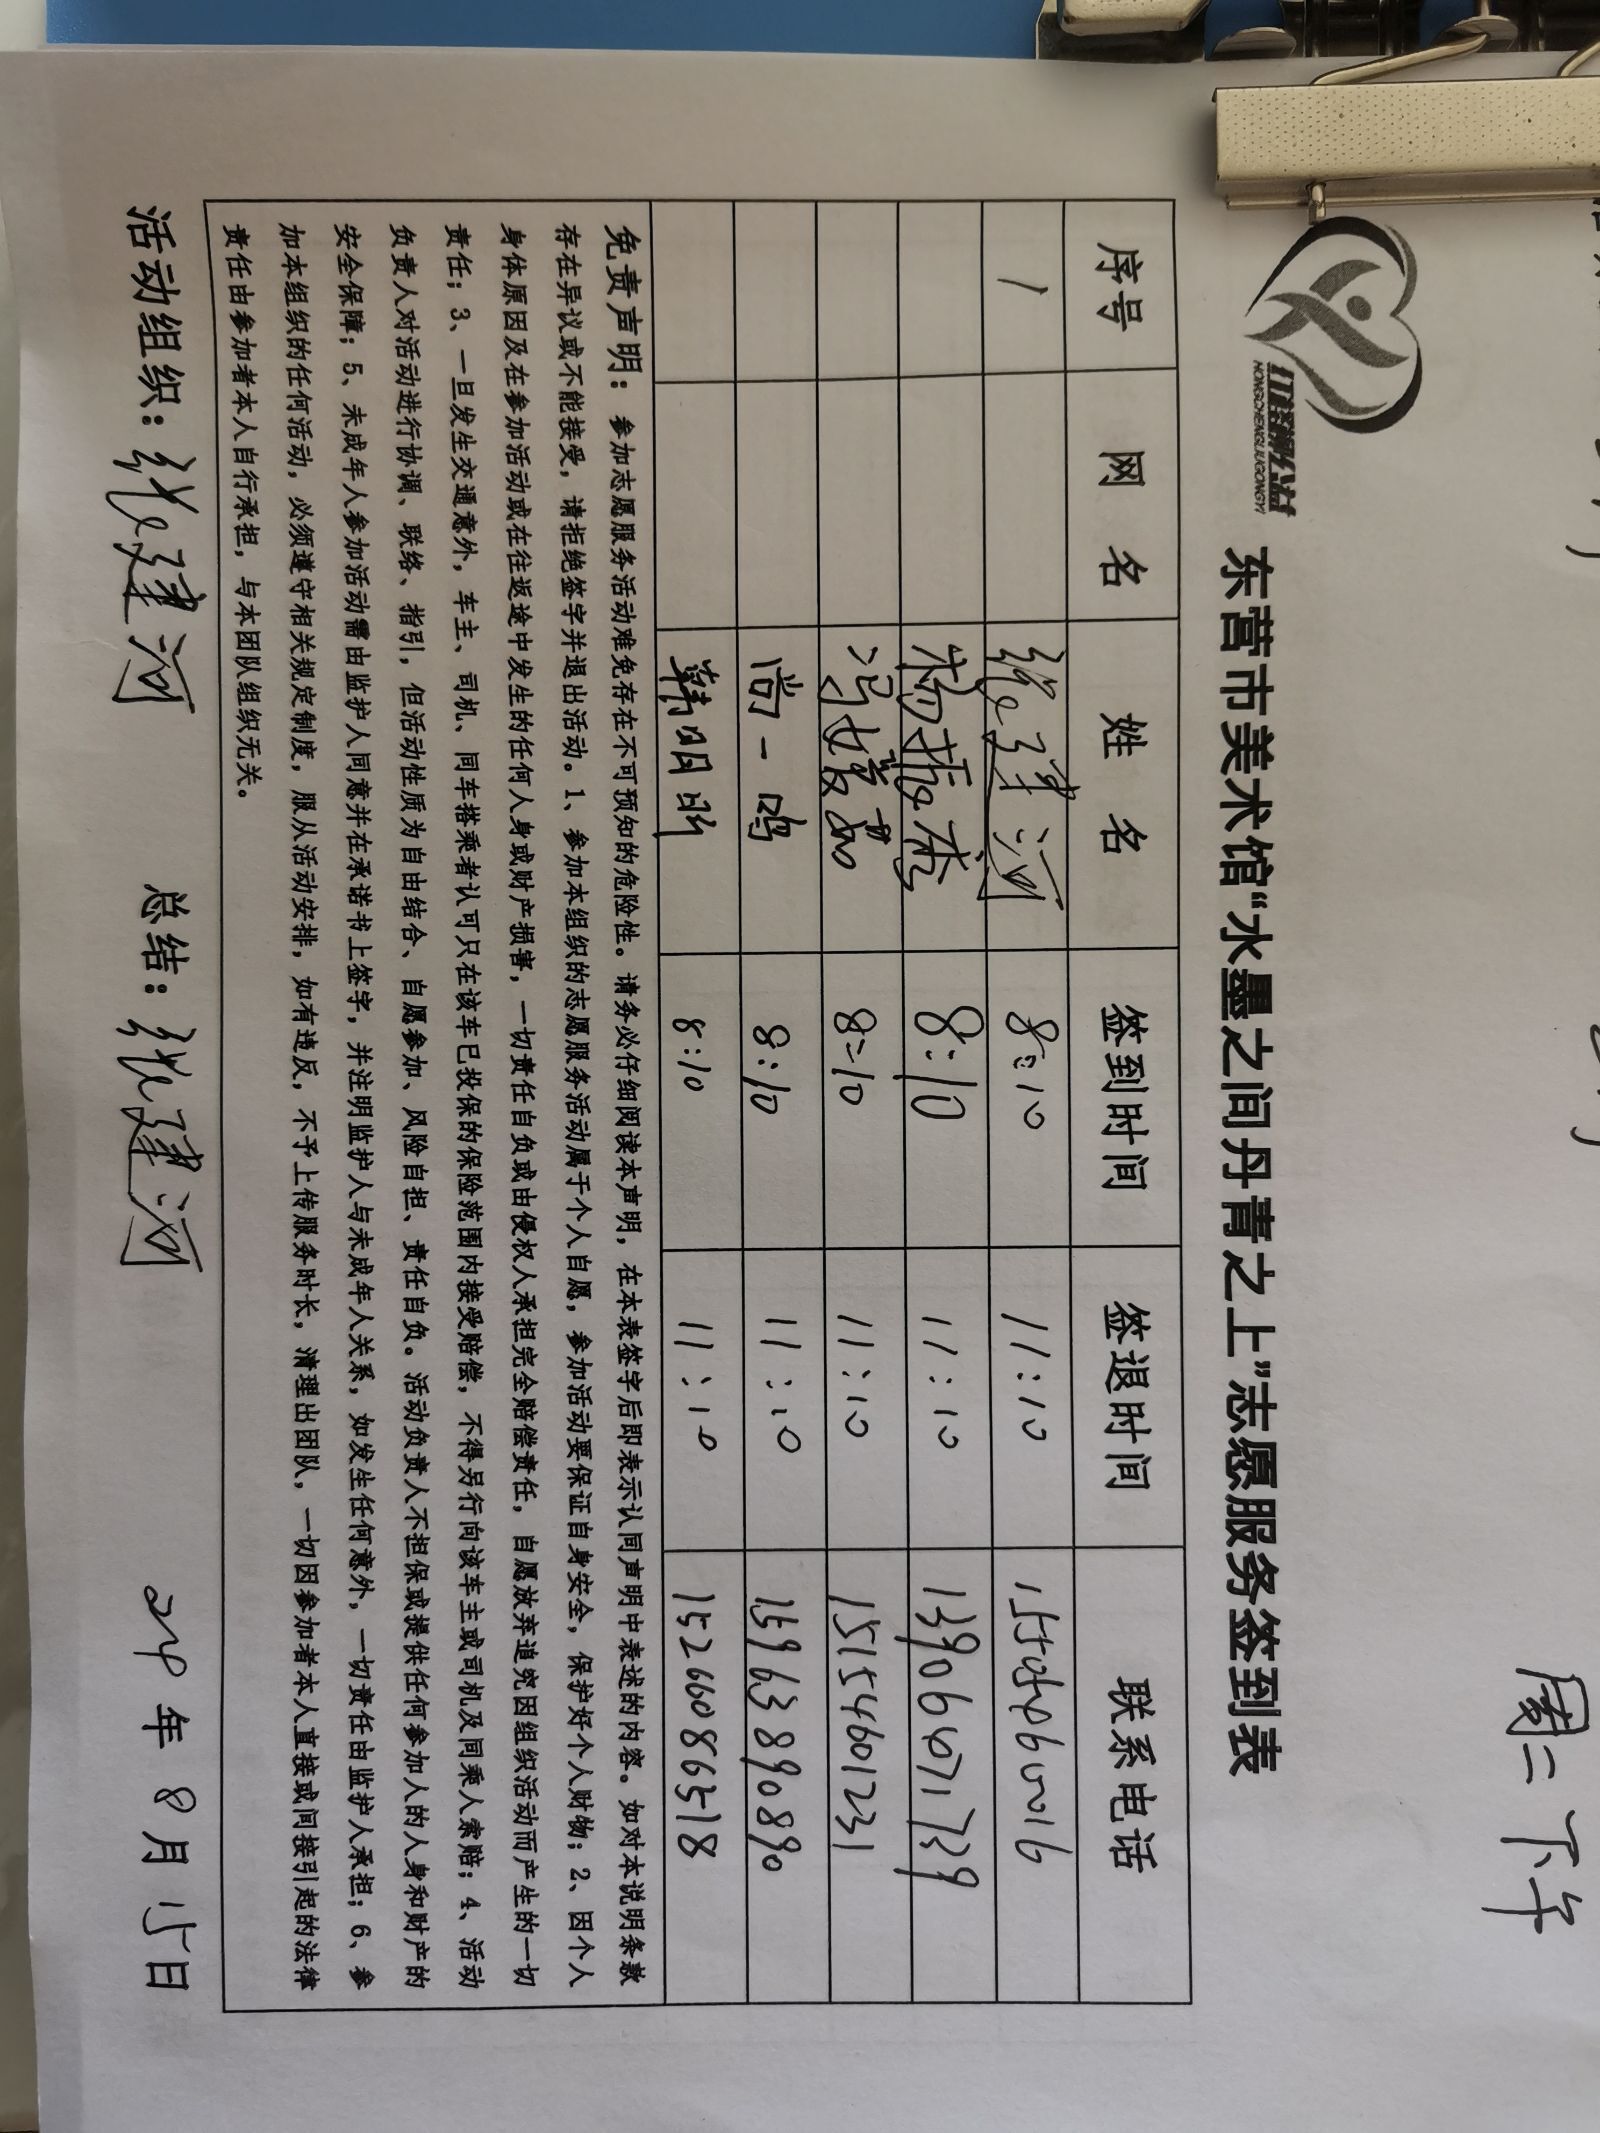 周二下午
HONGCHENGLIUGONGYI
东营市美术馆“水墨之间丹青之上”志愿服务签到表
序号 网 名 姓 名 签到时间 签退时间 联系电话
1 张建河 8:10 11:10
杨振杰 8:10 11:10 13906471739
冯媛茹 8:10 11:10 15154601231
尚一鸣 8:10 11:10 15963890890
韩明昕 8:10 11:10 15266086518
免责声明：参加志愿服务活动难免存在不可预知的危险性。请务必仔细阅读本声明，在本表签字后即表示认同声明中表述的内容。如对本说明条款
存在异议或不能接受，请拒绝签字并退出活动。1、参加本组织的志愿服务活动属于个人自愿，参加活动要保证自身安全，保护好个人财物；2、因个人
身体原因及在参加活动或在往返途中发生的任何人身或财产损害，一切责任自负或由侵权人承担完全赔偿责任，自愿放弃追究因组织活动而产生的一切
责任；3、一旦发生交通意外，车主、司机、同车搭乘者认可只在该车已投保的保险范围内接受赔偿，不得另行向该车主或司机及同乘人索赔；4、活动
负责人对活动进行协调、联络、指引，但活动性质为自由结合、自愿参加、风险自担、责任自负。活动负责人不担保或提供任何参加人的人身和财产的
安全保障；5、未成年人参加活动需由监护人同意并在承诺书上签字，并注明监护人与未成年人关系，如发生任何意外，一切责任由监护人承担；6、参
加本组织的任何活动，必须遵守相关规定制度，服从活动安排，如有违反，不予上传服务时长，清理出团队，一切因参加者本人直接或间接引起的法律
责任由参加者本人自行承担，与本团队组织无关。
活动组织：张建河 总结：张建河 24 年 8 月 15 日